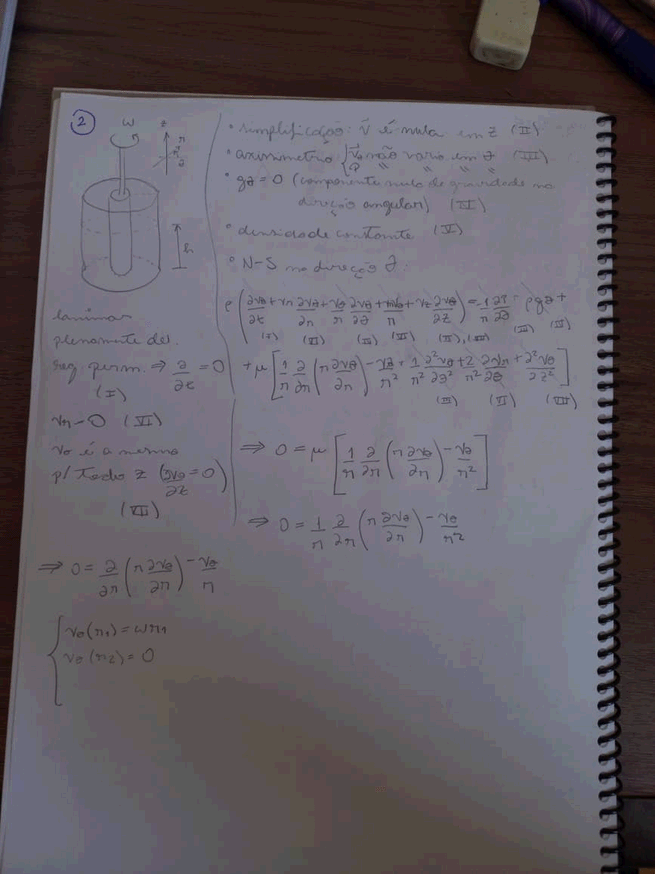 2
ω
z
r
θ
h
laminar
plenamente des.
reg. perm. ⇒ ∂/∂t = 0
(I)
vr = 0 (VI)
vθ é a mesma
p/ todo z (∂vθ/∂z = 0)
(VII)
• simplificação: v⃗ é nula em z (II)
• axissimetria: { vθ não varia em θ (III)
P " " " "
• gθ = 0 (componente nula de gravidade na
direção angular) (IV)
• densidade constante (V)
• N-S na direção θ:
ρ(∂vθ/∂t + vr ∂vθ/∂r + vθ/r ∂vθ/∂θ + vr vθ/r + vz ∂vθ/∂z) = -1/r ∂P/∂θ + ρgθ +
(I) (VI) (III) (VI) (II),(VII) (III) (IV)
+ μ[1/r ∂/∂r (r ∂vθ/∂r) - vθ/r² + 1/r² ∂²vθ/∂θ² + 2/r² ∂vr/∂θ + ∂²vθ/∂z²]
(III) (VI) (VII)
⇒ 0 = μ[1/r ∂/∂r (r ∂vθ/∂r) - vθ/r²]
⇒ 0 = 1/r ∂/∂r (r ∂vθ/∂r) - vθ/r²
⇒ 0 = ∂/∂r (r ∂vθ/∂r) - vθ/r
{ vθ(r1) = ωr1
vθ(r2) = 0